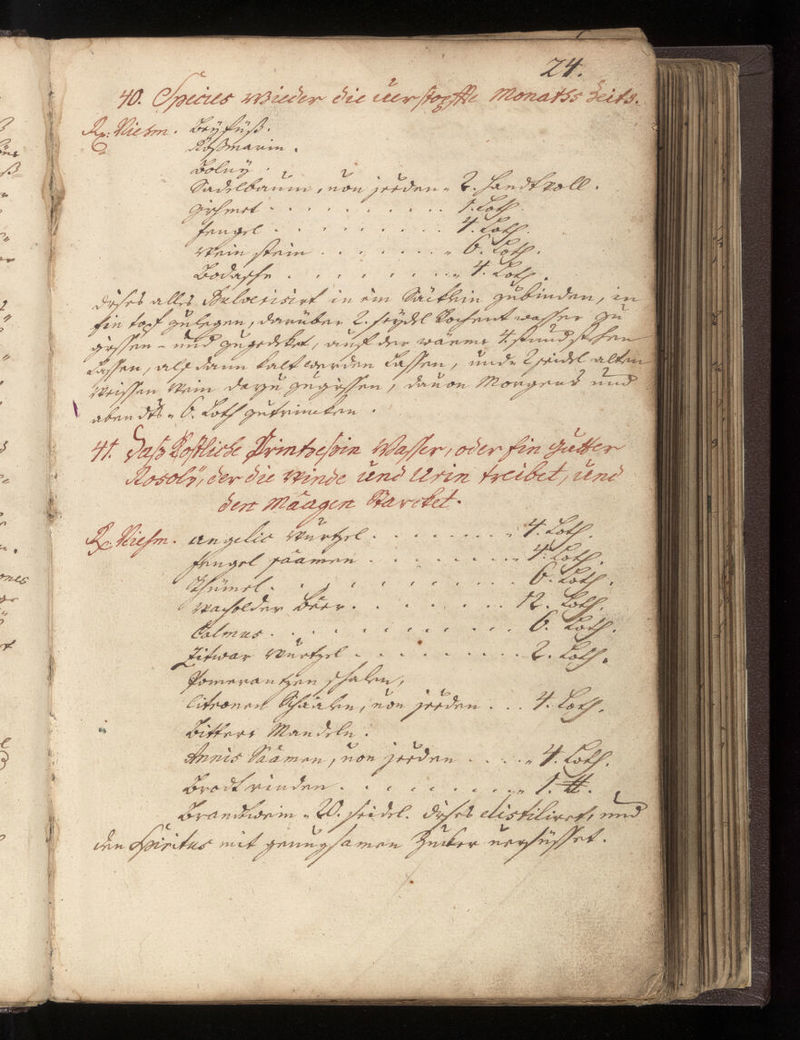 24.
40. Species wieder die verstopffte Monaths Zeits.
Rx: Niehm. Beyfüß.
Roßmarin.
Boley.
Sadelbaum, von jeeden 2. Handt voll.
1. Loth.
Fengel 4. Loth.
Weinstein 6. Loth.
Bodasche 4. Loth.
dises alles Pulverisirt in ein Säcklein gebinden, in
ein topf gelegen, darüber 2. seydl kochent wasser zu
güssen und zugedeket, auf der warme 4. stund stehen
Lassen, als dann kalt werden Lassen, und 2 seidl alten
Weissen Wein darzu gegüssen, davon Morgens und
abendts 6. Loth getrincken.
41. Daß Köstliche Printzessin Wasser, oder ein gutter
Rosoly, der die Winde und Urin treibet, und
den Mäagen Starcket.
Rx: Niehm. angelic wurtzel 4. Loth.
fengel säamen 4. Loth.
Khümel 6. Loth.
wacholder beer 12. Loth.
Calmus 6. Loth.
Zitwar wurtzel 2. Loth.
Pomerantzen schalen,
Citronen Schäalen, von jeeden 4. Loth.
Bittere Mandeln.
Annis Säamen, von jeeden 4. Loth.
Brodt rinden 1. ℔.
Brandtwein 20. seidel. dises distiliret, und
den Spiritus mit genugsamen Zucker versüsset.